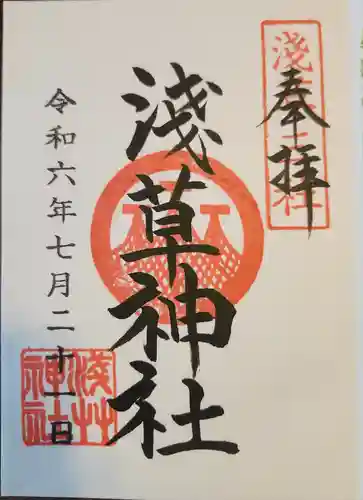 奉拝
淺草神社
令和六年七月二十一日
淺草神社